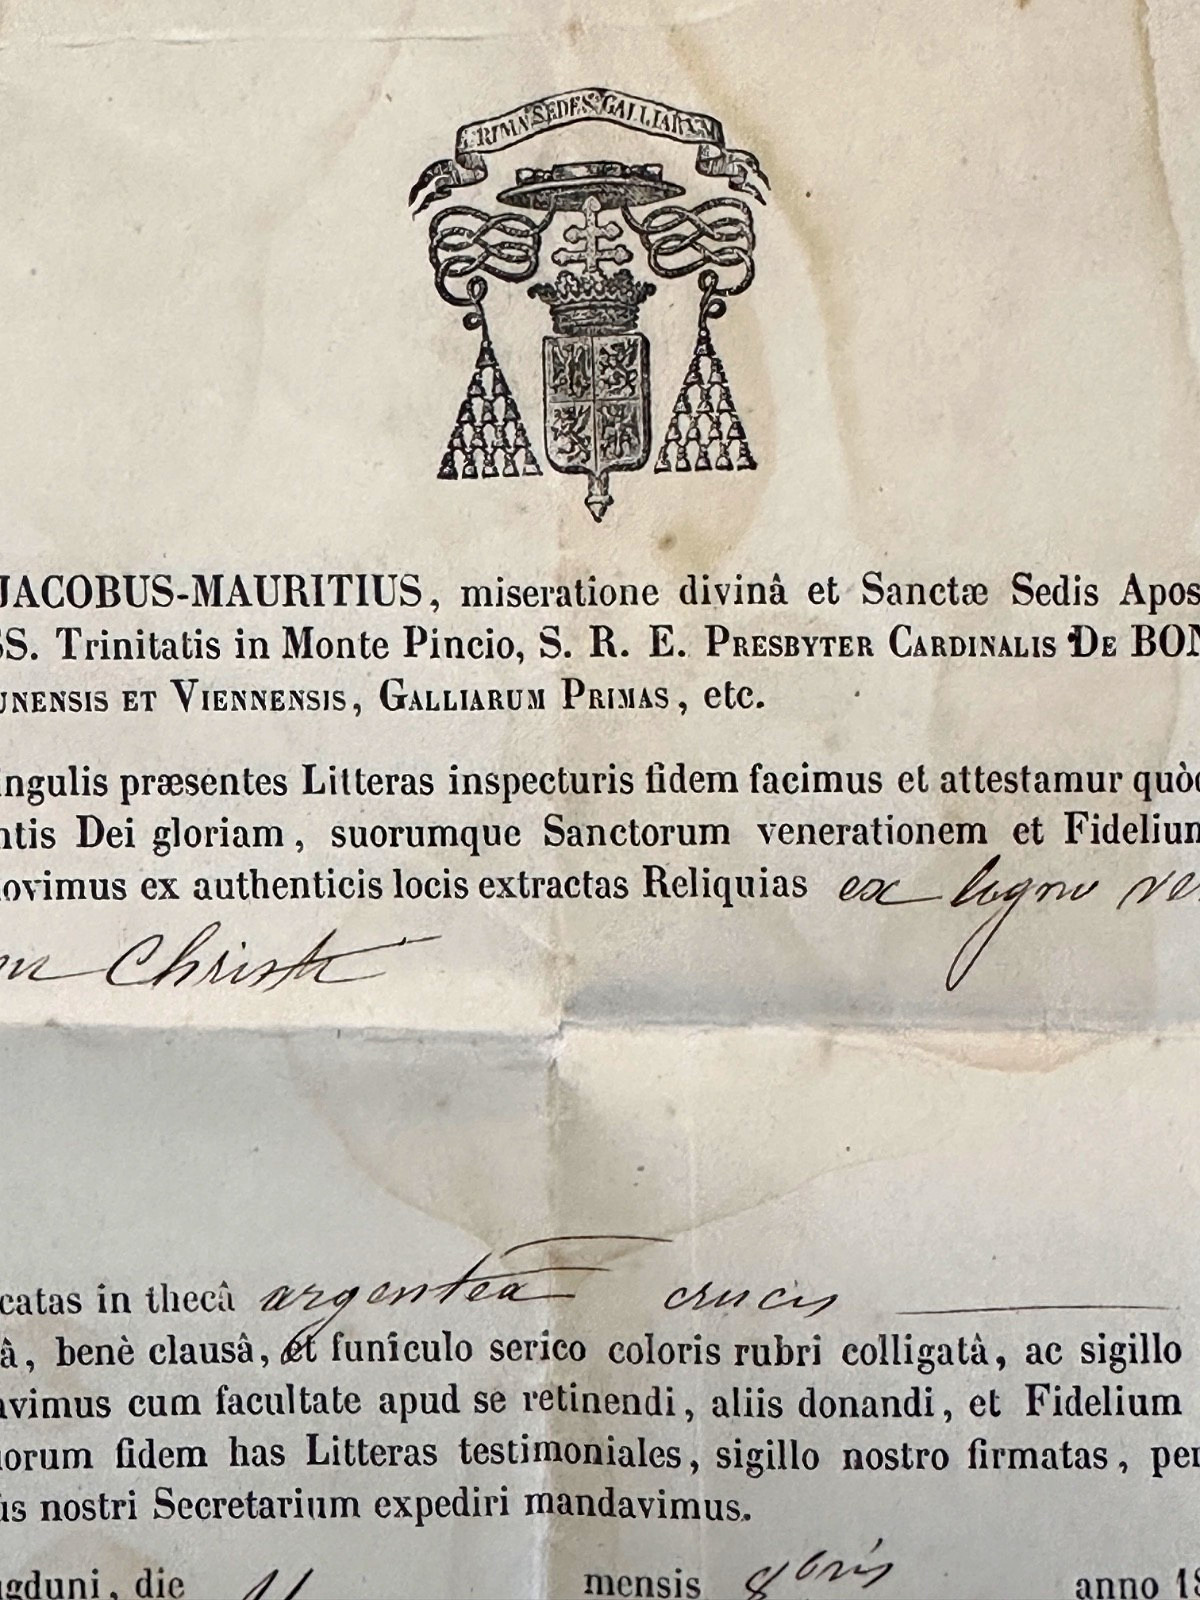 PRIMA SEDES GALLIARUM
JACOBUS-MAURITIUS, miseratione divinâ et Sanctæ Sedis Apos
SS. Trinitatis in Monte Pincio, S. R. E. PRESBYTER CARDINALIS DE BON
UNENSIS ET VIENNENSIS, GALLIARUM PRIMAS, etc.
ingulis præsentes Litteras inspecturis fidem facimus et attestamur quòd
ntis Dei gloriam, suorumque Sanctorum venerationem et Fidelium
ovimus ex authenticis locis extractas Reliquias ex ligno ve
Christi
catas in thecâ argenteâ crucis
â, benè clausâ, et funiculo serico coloris rubri colligatâ, ac sigillo
avimus cum facultate apud se retinendi, aliis donandi, et Fidelium
uorum fidem has Litteras testimoniales, sigillo nostro firmatas, per
ûs nostri Secretarium expediri mandavimus.
gduni, die 11 mensis 8bris anno 18